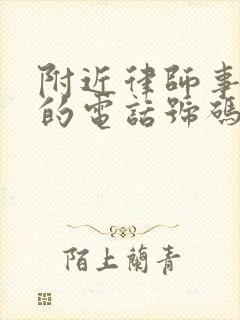 附近律師事
的電話號碼
陌上蘭青